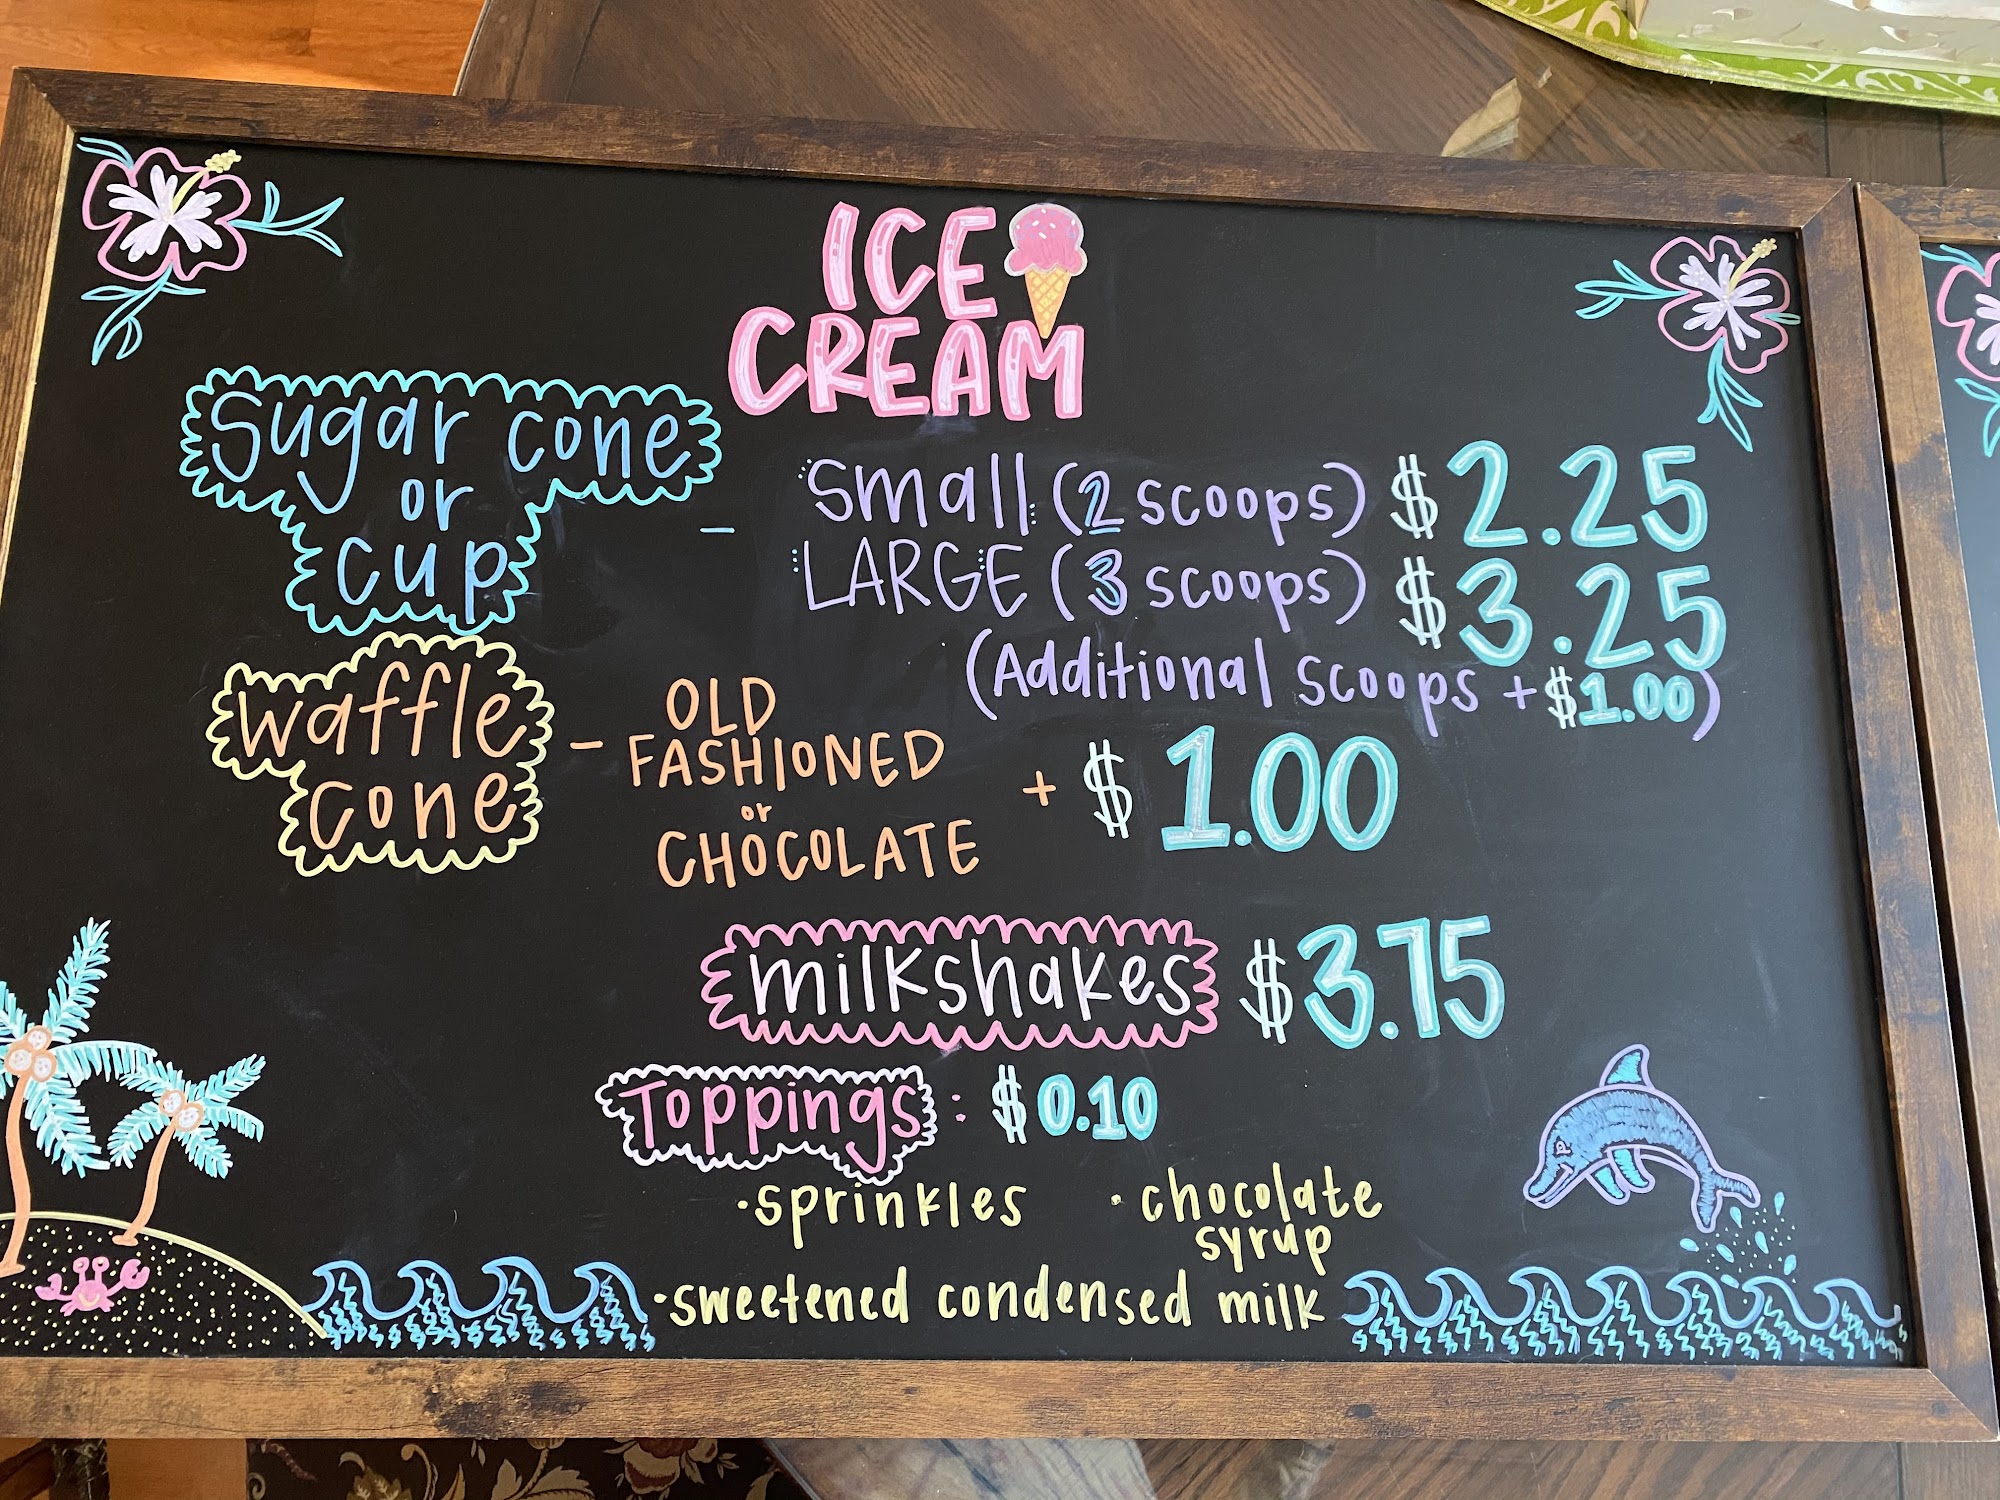 ICE
CREAM
sugar cone
or
cup
- small (2 scoops) $2.25
LARGE (3 scoops) $3.25
(Additional scoops + $1.00)
waffle
cone
- OLD
FASHIONED
or
CHOCOLATE
+ $1.00
milkshakes $3.75
Toppings: $0.10
•sprinkles
•chocolate
syrup
•sweetened condensed milk